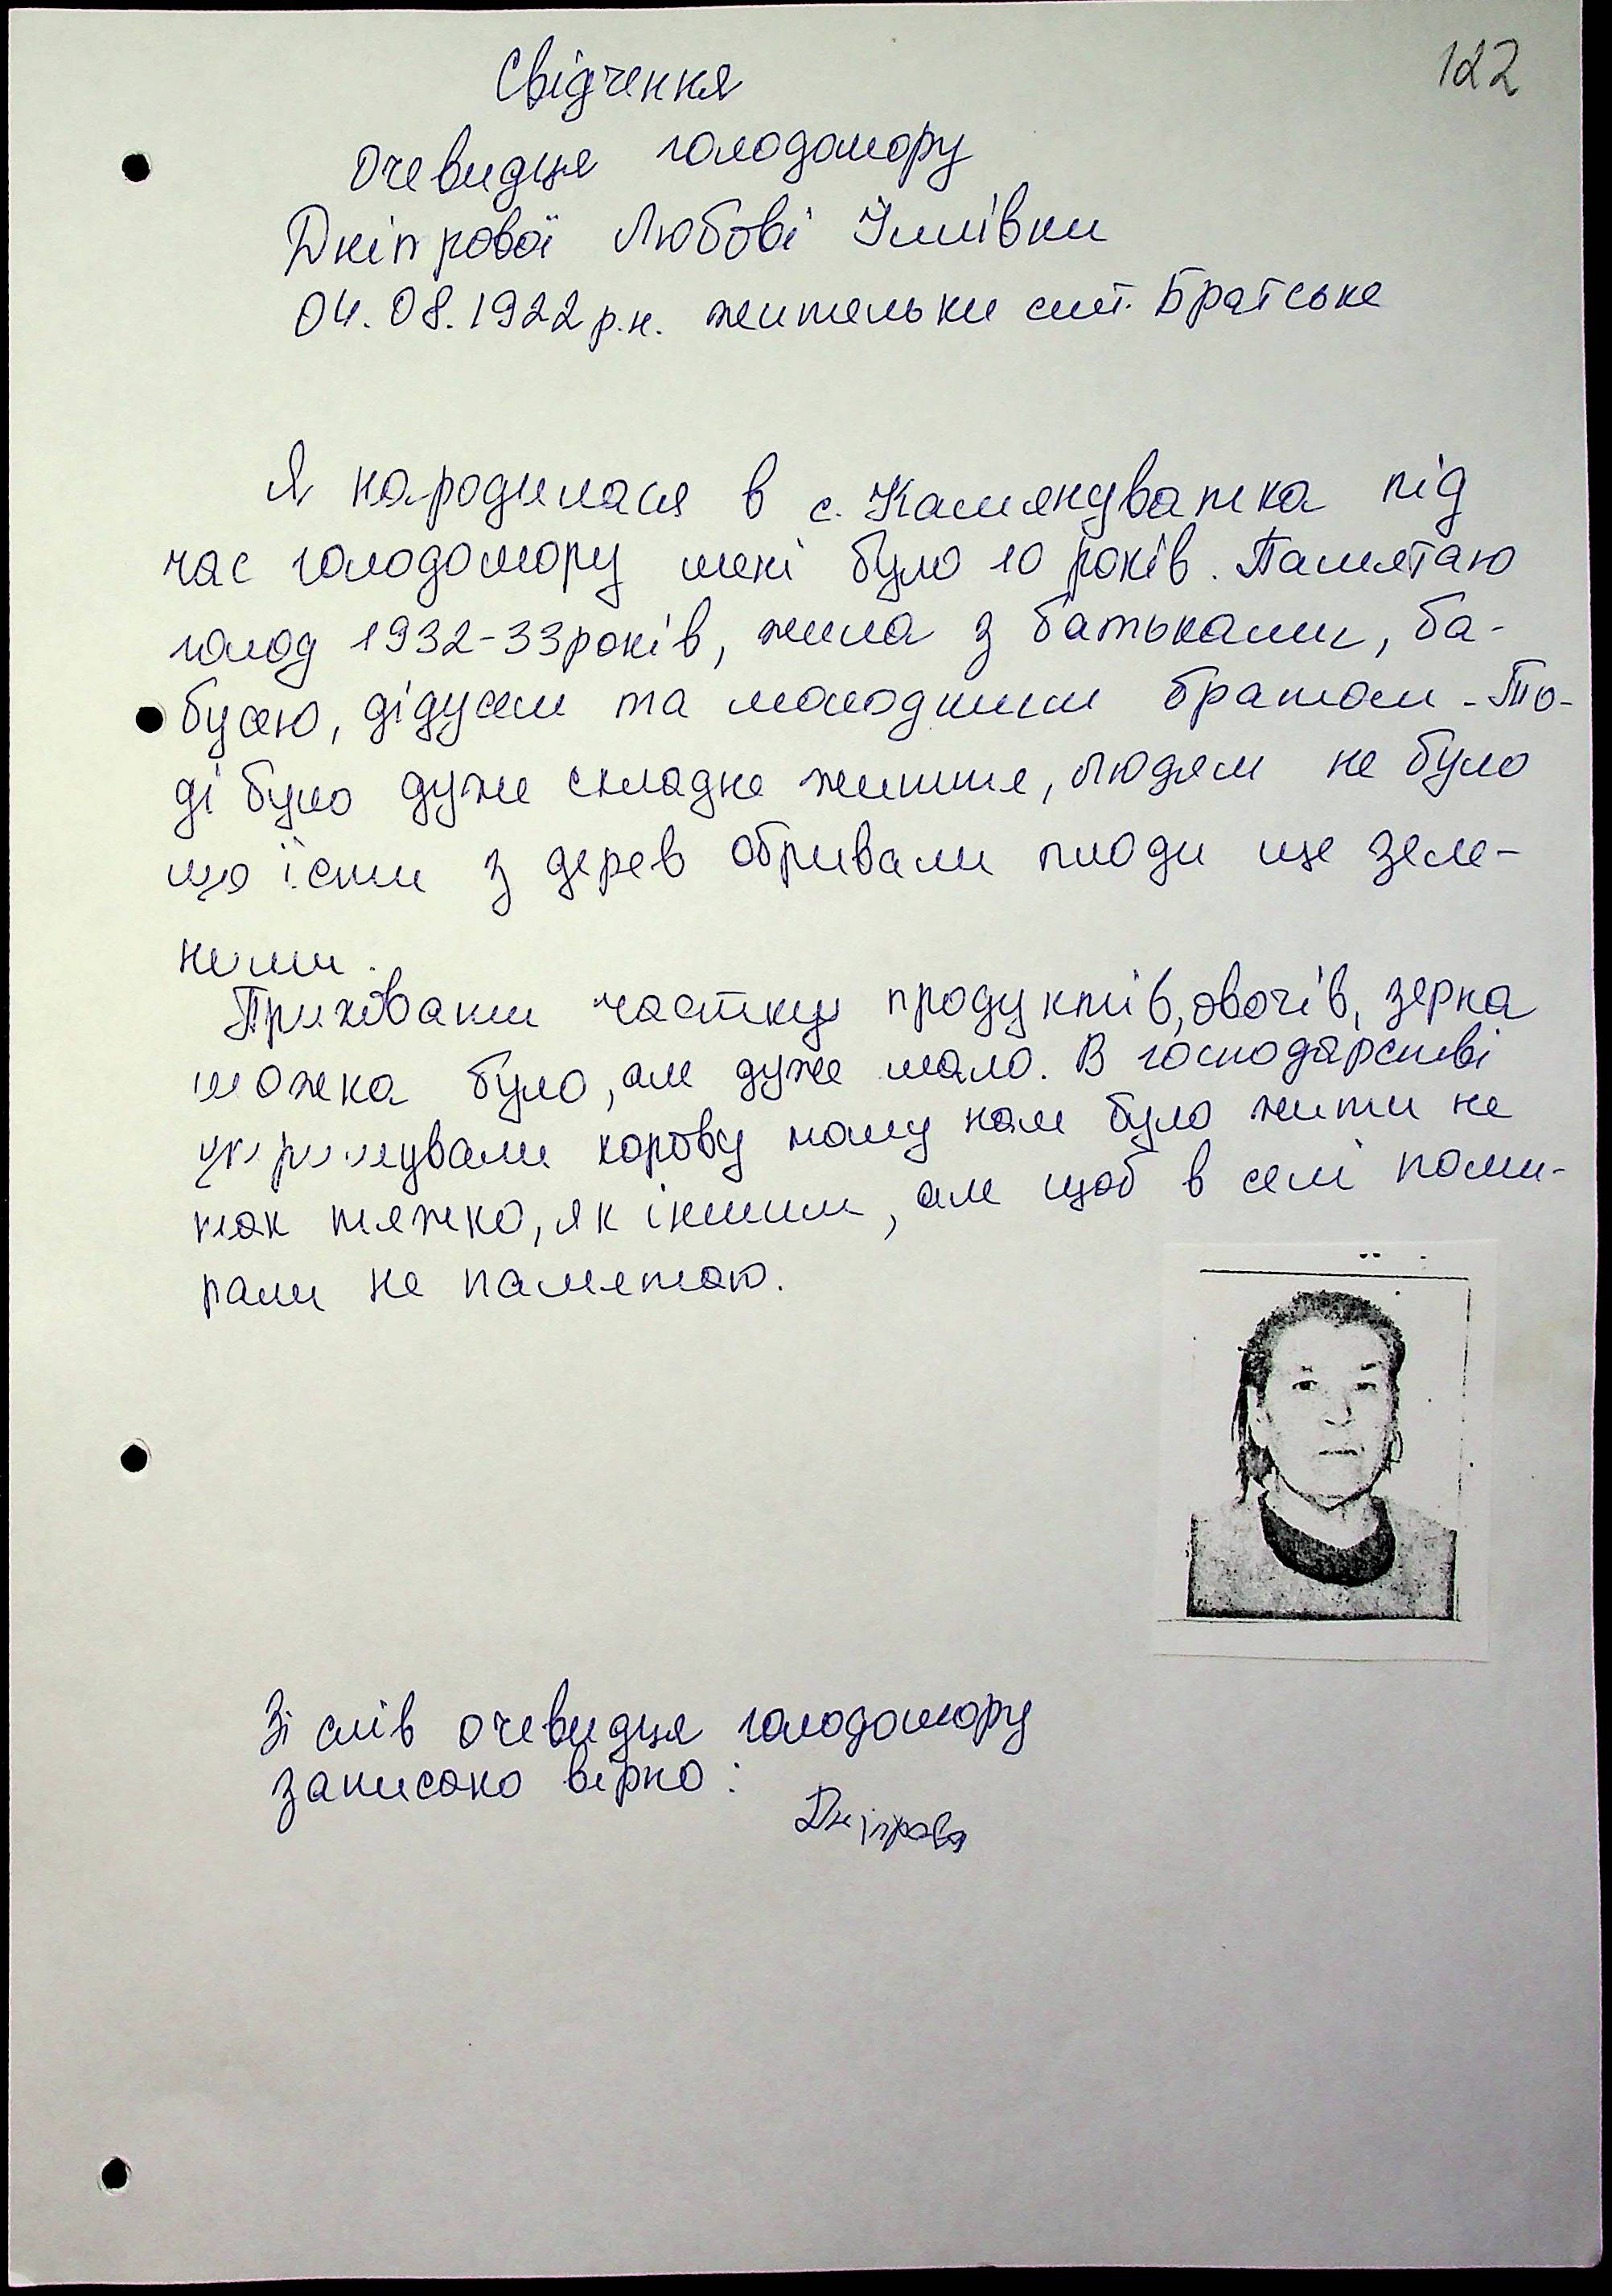 122
Свідчення
очевидця голодомору
Дніпрової Любові Іллівни
04.08.1922 р.н. жительки смт. Братське
Я народилася в с. Камянуватка під
час голодомору мені було 10 років. Памятаю
голод 1932-33 років, жила з батьками, ба-
бусею, дідусем та молодшим братом. То-
ді було дуже складне життя, людям не було
що їсти з дерев обривали плоди ще зеле-
ними.
Приховати частку продуктів, овочів, зерна
можна було, але дуже мало. В господарстві
утримували корову тому нам було жити не
так тяжко, як іншим, але щоб в селі поми-
рали не памятаю.
Зі слів очевидця голодомору
записано вірно:
Дніпрова